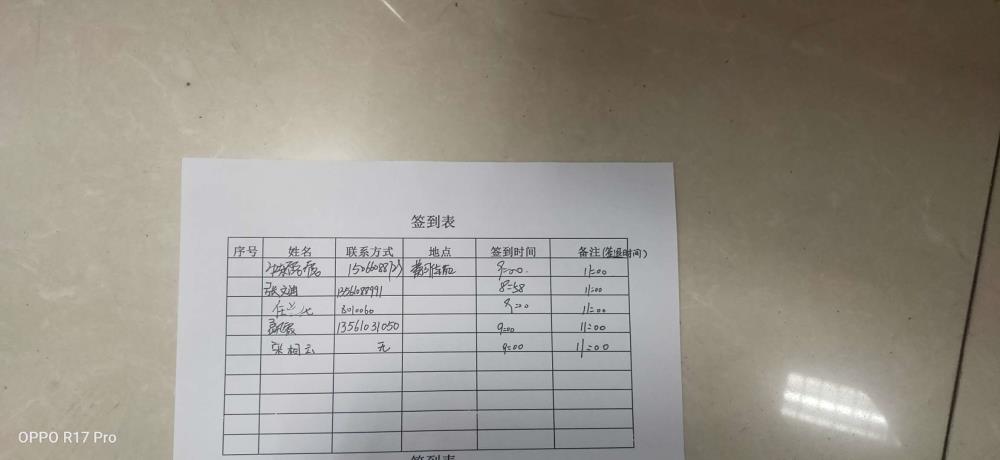 签到表
序号 姓名 联系方式 地点 签到时间 备注(签退时间)
9:00. 11:00
张文迪 1356088991 8:58 11:00
8010060 9:00 11:00
13561031050 9:00 11:00
张相云 无 9:00 11:00
签到表
OPPO R17 Pro